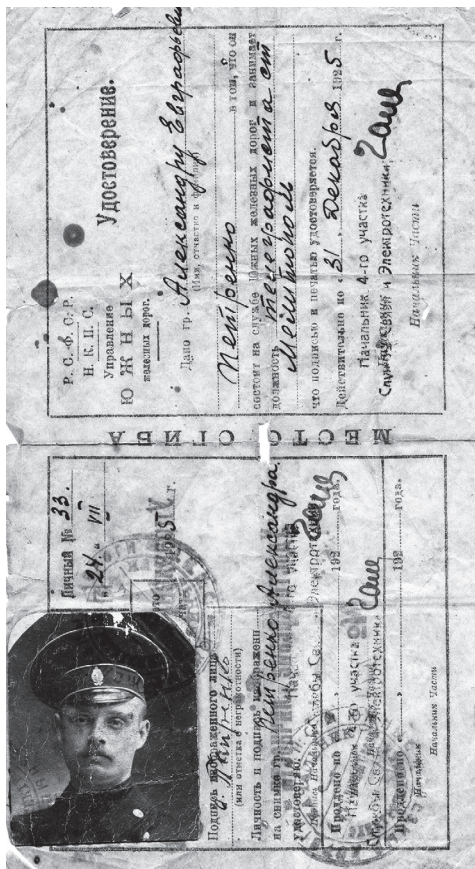 Р. С. Ф. С. Р.
Н. К. П. С.
Управление
ЮЖНЫХ
железных дорог.
Удостоверение.
Дано гр. Александру Евграфьеви
(Имя, отчество и фамилия)
Петренко в том, что он
состоит на службе Южных железных дорог и занимает
должность телеграфиста ст
Мелитополь
что подписью и печатью удостоверяется.
Действительно по „31„ Декабря 1925 г.
Начальник 4-го участка
Службы Связи и Электротехники
Начальник Части
МЕСТО СГИБА
Личный № 33.
„24„ VII 1925 г.
Подпись изображенного лица
(или отметка о неграмотности)
Личность и подпись изображенн
на снимке гр. Петренко Александра
удостоверяю
Продлено по „ „ 192 года.
Начальник 4-го участка
Службы Связи и Электротехники
Продлено по „ „ 192 года.
Начальник Части